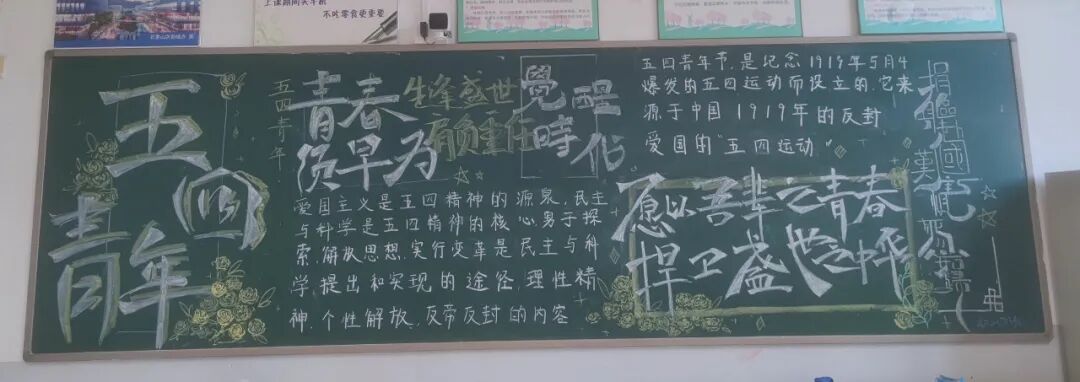 不吃零食更重要
五
(四)
青年
五四青年
青春
须早为
生逢盛世
肩负重任
覺醒
時代
爱国主义是五四精神的源泉,民主
与科学是五四精神的核心,勇于探
索,解放思想,实行变革是民主与科
学提出和实现的途径,理性精
神、个性解放、反帝反封的内容
五四青年节,是纪念1919年5月4
爆发的五四运动而设立的,它来
源于中国1919年的反封
爱国的"五四运动"
愿以吾辈之青春
捍卫盛世之中华